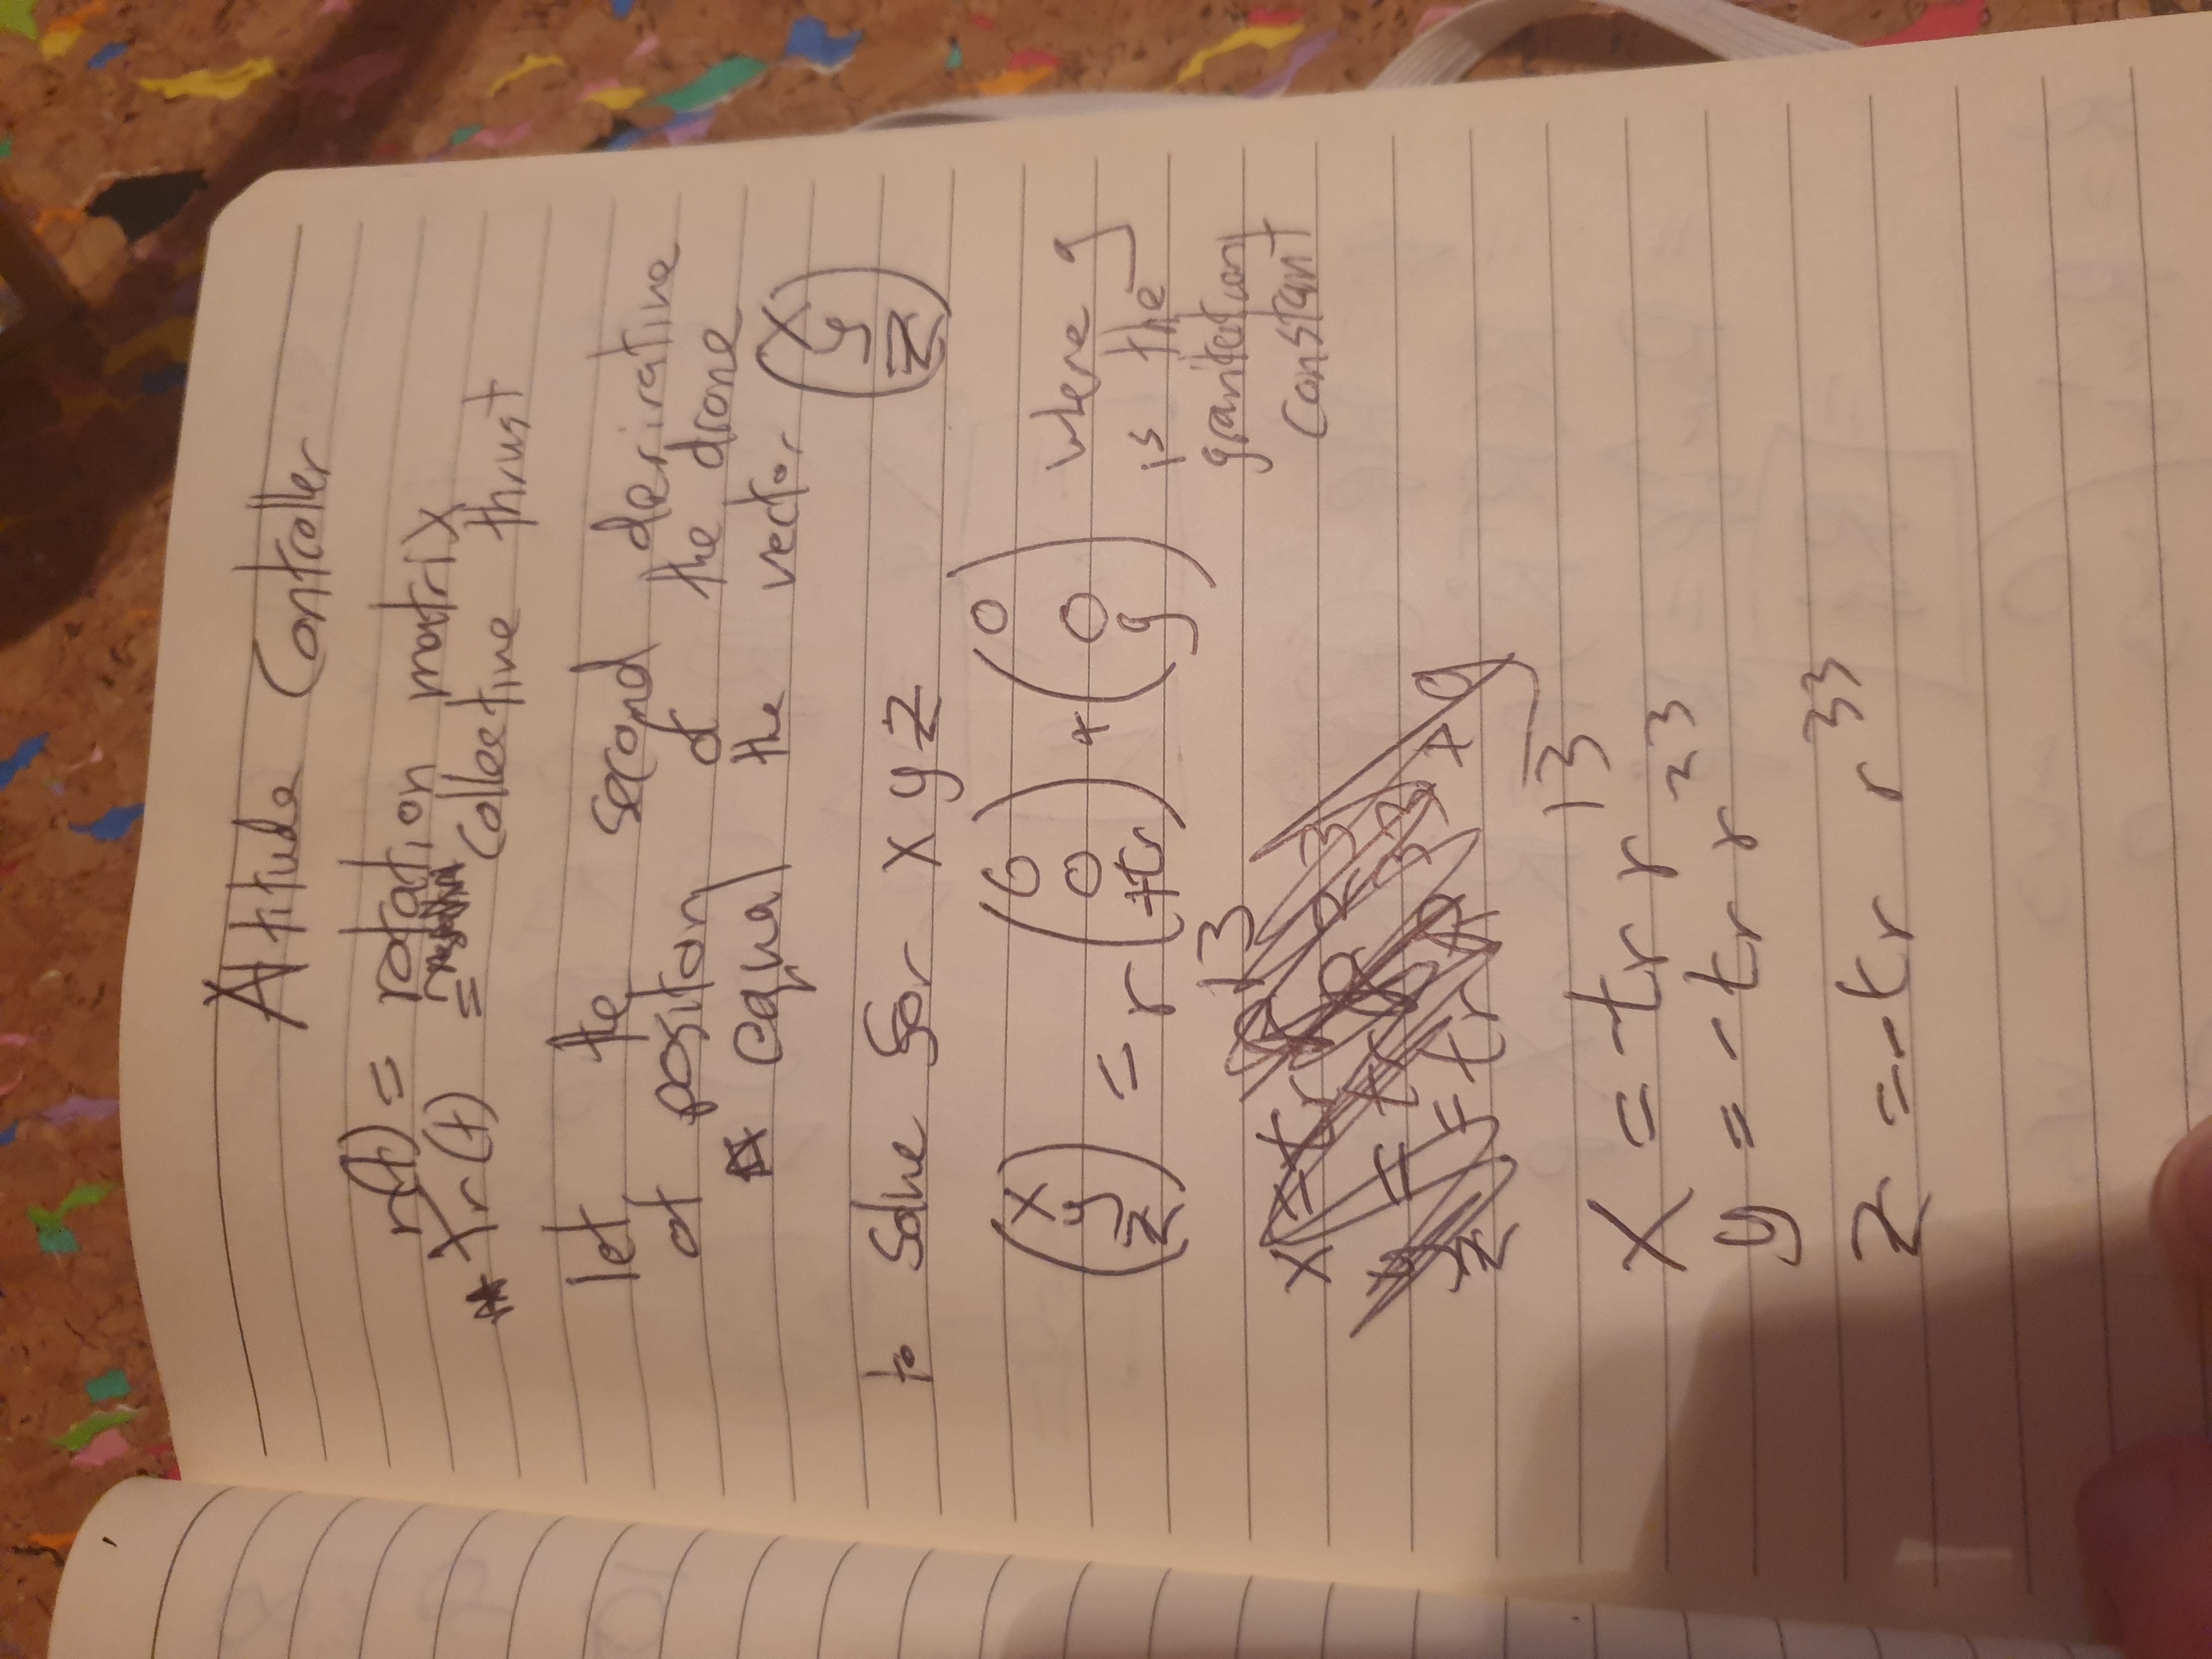 Altitude Controller
r(t) = rotation matrix
Tr(t) = collective thrust
let the second derivative
of positon of the drone
equal the vector (x y z)
to solve for x y z
(x y z) = r (0 0 +tr) + (0 0 g) where g
is the
gravitation
constant
x = tr r 13
y = tr r 23
z = tr r 33 + g
x = -tr r 13
y = -tr r 23
z = -tr r 33